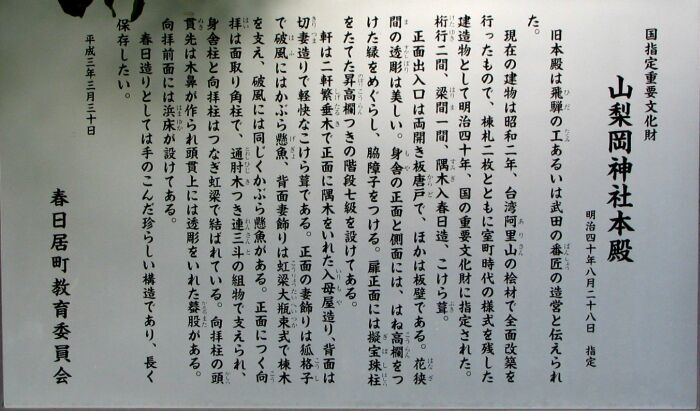 国指定重要文化財
山梨岡神社本殿
明治四十年八月二十八日 指定
旧本殿は飛騨の工あるいは武田の番匠の造営と伝えられ
た。
現在の建物は昭和二年、台湾阿里山の桧材で全面改築を
行ったもので、棟札二枚とともに室町時代の様式を残した
建造物として明治四十年、国の重要文化財に指定された。
桁行二間、梁間一間、隅木入春日造、こけら葺。
正面出入口は両開き板唐戸で、ほかは板壁である。花狭
間の透彫は美しい。身舎の正面と側面には、はね高欄をつ
けた縁をめぐらし、脇障子をつける。扉正面には擬宝珠柱
をたてた昇高欄つきの階段七級を設けてある。
軒は二軒繁垂木で正面に隅木をいれた入母屋造り、背面は
切妻造りで軽快なこけら葺である。正面の妻飾りは狐格子
で破風にはかぶら懸魚、背面妻飾りは虹梁大瓶束式で棟木
を支え、破風には同じくかぶら懸魚がある。正面につく向
拝は面取り角柱で、通肘木つき連三斗の組物で支えられ、
身舎柱と向拝柱はつなぎ虹梁で結ばれている。向拝柱の頭
貫先は木鼻が作られ頭貫上には透彫をいれた蟇股がある。
向拝前面には浜床が設けてある。
春日造りとしては手のこんだ珍らしい構造であり、長く
保存したい。
平成三年三月三十日
春日居町教育委員会